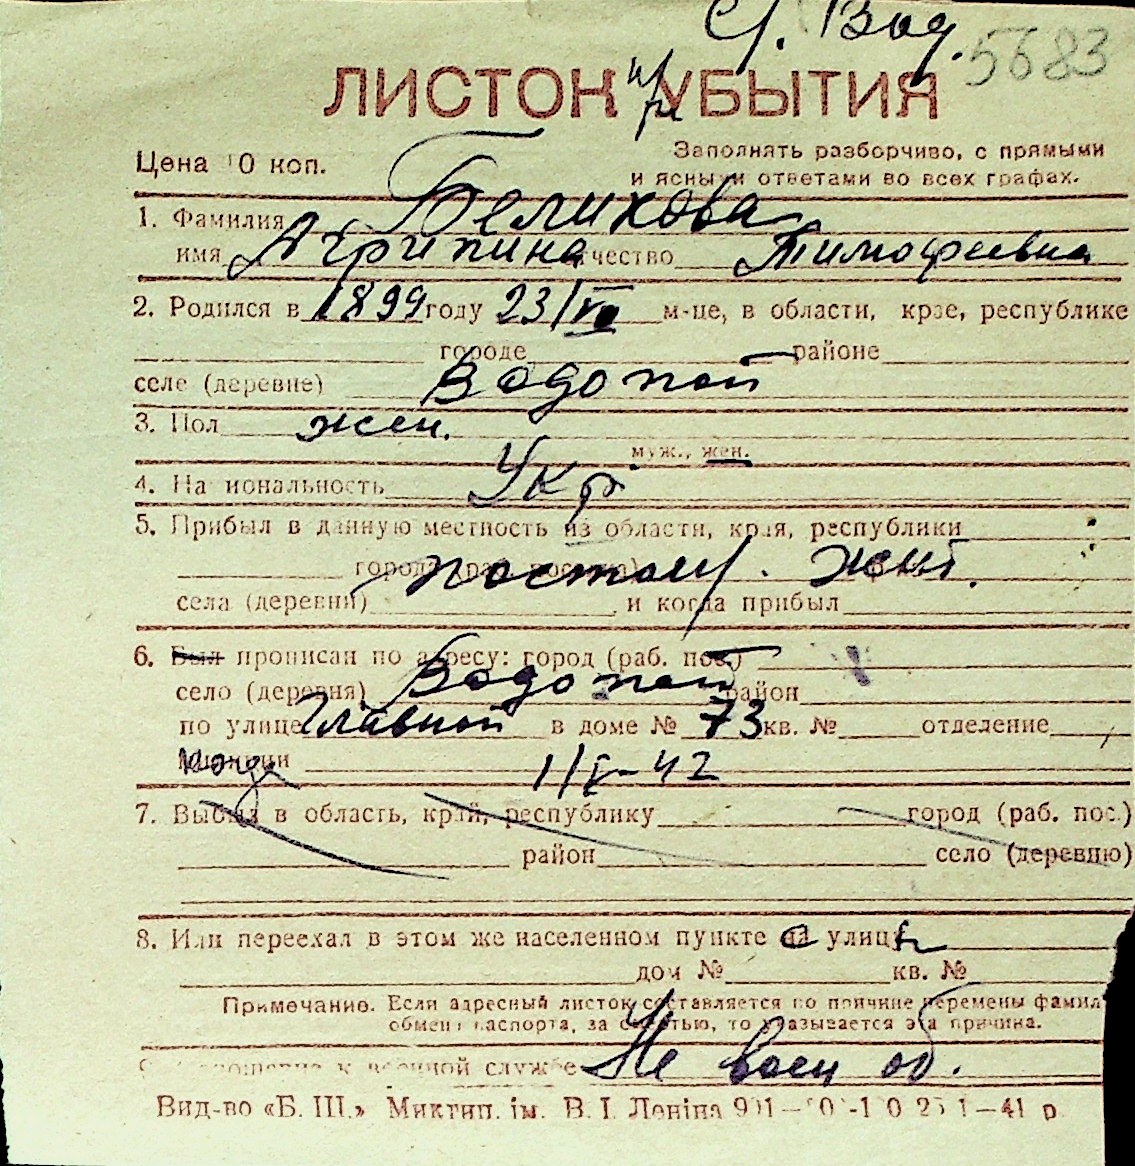 Ст. Вод. 5683
ЛИСТОК УБЫТИЯ
Цена 10 коп.
Заполнять разборчиво, с прямыми
и ясными ответами во всех графах.
1. Фамилия Беликова
имя Агрипина отчество Тимофеевна
2. Родился в 1899 году 23/VI м-це, в области, крае, республике
городе районе
селе (деревне) Водопой
3. Пол жен.
муж., жен.
4. Национальность Укр
5. Прибыл в данную местность из области, края, республики
города (раб. поселка) постоян. жит.
села (деревни) и когда прибыл
6. Был прописан по адресу: город (раб. пос.)
село (деревня) Водопой район
по улице Главной в доме № 73 кв. № отделение
милиции 1/V-42
7. Выбыл в область, край, республику город (раб. пос.)
район село (деревню)
8. Или переехал в этом же населенном пункте на улицу
дом № кв. №
Примечание. Если адресный листок составляется по причине перемены фамил
обмен паспорта, за смертью, то указывается эта причина.
9. Отношение к военной службе Не воен об.
Вид-во «Б. Ш.» Миктип. ім. В. І. Леніна